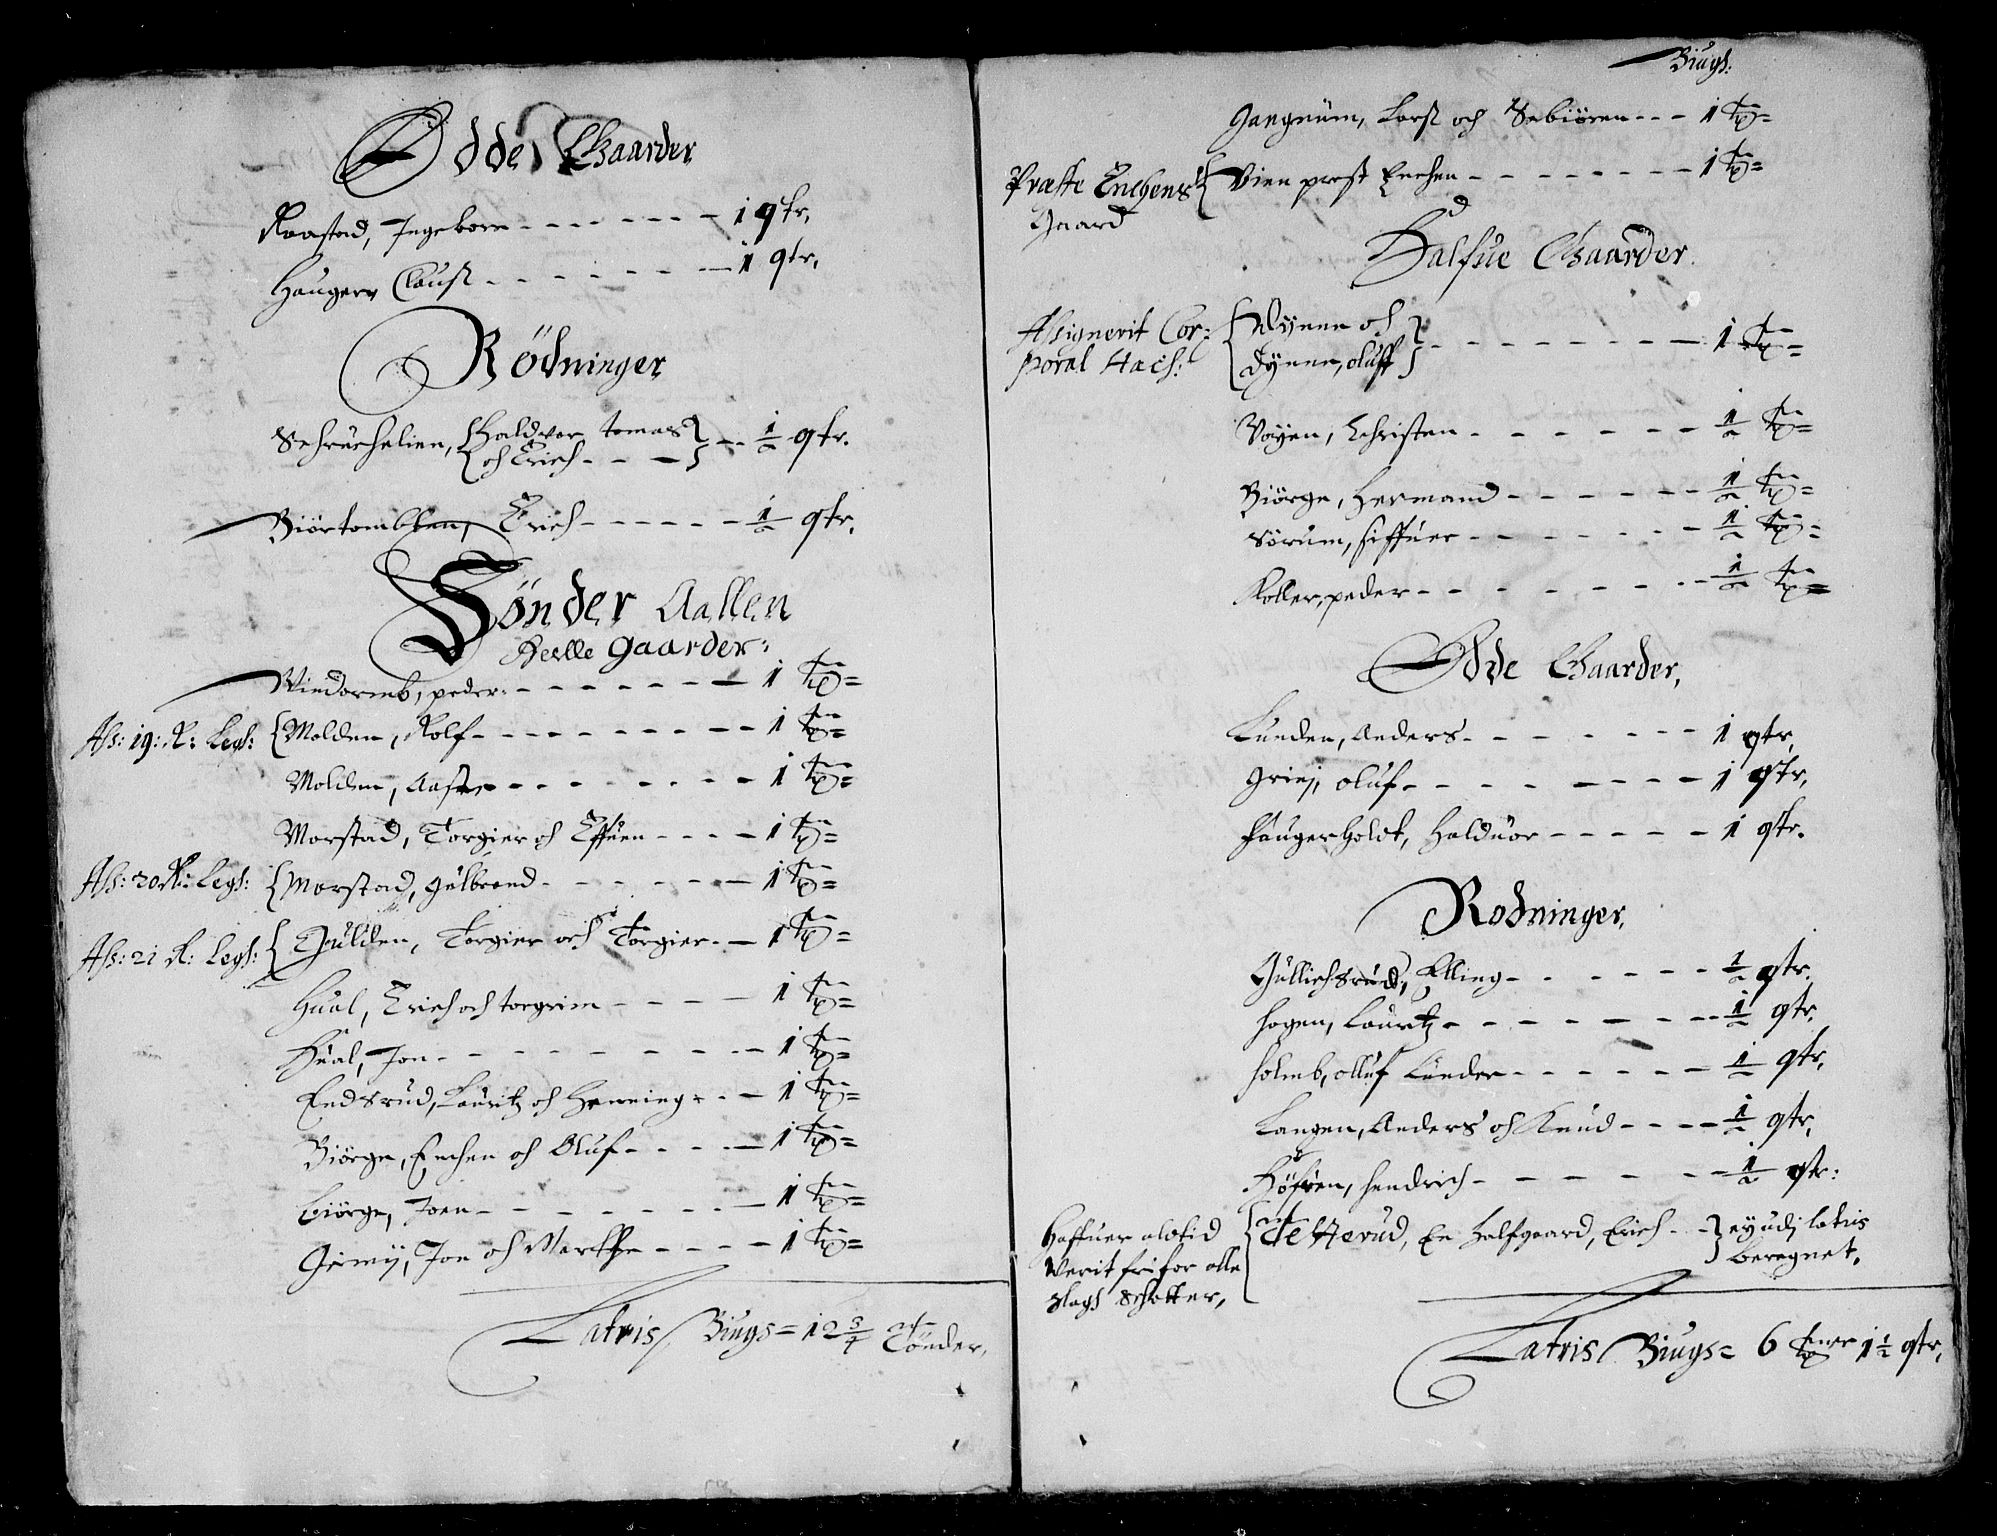 Ødde Gaarder
Raastad, Ingeborn - - - - - - 1 qtr,
Haugerr Clauss - - - - - - 1 qtr,
Rödninger
Schruchelien, {Haldvor tomas
och Erich - - - -} - - 1/2 qtr.
Biörtombben, Erich - - - - - - 1/2 qtr.
Sönder Aallen
Heelle Gaarder:
Windormb, peder: - - - - - - - 1 tø=
Ass: 19: R: Legh: {Molden, Rolf - - - - - - - - 1 tø=
Molden, Aaste - - - - - - - - 1 tø=
Morstad, Torgier och Effuen - - - - 1 tø=
Ass: 20 R: Legh: {Morstad, Gulbrand - - - - - - - 1 tø=
Ass: 21 R: Legh: {Gulden, Torgier och Torgier - - 1 tø=
Hual, Erich och torgrim - - - - 1 tø=
Hual, Jon - - - - - - - - 1 tø=
Endsrud, Lauritz och Henning - - - 1 tø=
Biörge, Enchen och Oluf - - - - 1 tø=
biörge, Joen - - - - - - - - 1 tø=
Grimij, Jon och Marthe - - - - 1 tø=
Latris Biugs= 12 3/4 Tönder,
Biugh:
Gangnum, Lars och Sebiören - - - 1 tø=
Præste Enchens
Gaard
{Vien prest Enchen - - - - - - - - 1 tø=
Halfue Gaarder
Assignerit Cor:
poral Hach:
{Dynne och
Dynne, oluff} - - - - - - - - 1 tø=
Voyen, Christen - - - - - - - 1/2 tø=
Biörge, Hermand - - - - - - 1/2 tø=
Sörum, siffuer - - - - - - - 1/2 tø=
Koller, peder - - - - - - - - 1/2 tø=
Ødde Gaarder,
Lunden, Anders - - - - - - - 1 qtr,
Griej, oluf - - - - - - - - 1 qtr,
Haugerholdt, Halduor - - - - - 1 qtr.
Rodninger,
Gullichsrud, Elling - - - - - - 1/2 qtr.
Hogen, Lauritz - - - - - - - 1/2 qtr.
Holmb, olluf Lunder - - - - - - 1/2 qtr,
Langen, Anders och Knud - - - - 1/2 qtr,
Höfuen, Hendrich - - - - - - 1/2 qtr:
Haffuer altid
Verit fri for alle
slags Schatter,
{Tetterud, En halfgaard, Erich - -} ey udj latris
beregnet,
Latris Biugs= 6 tønr 1 1/2 qtr,